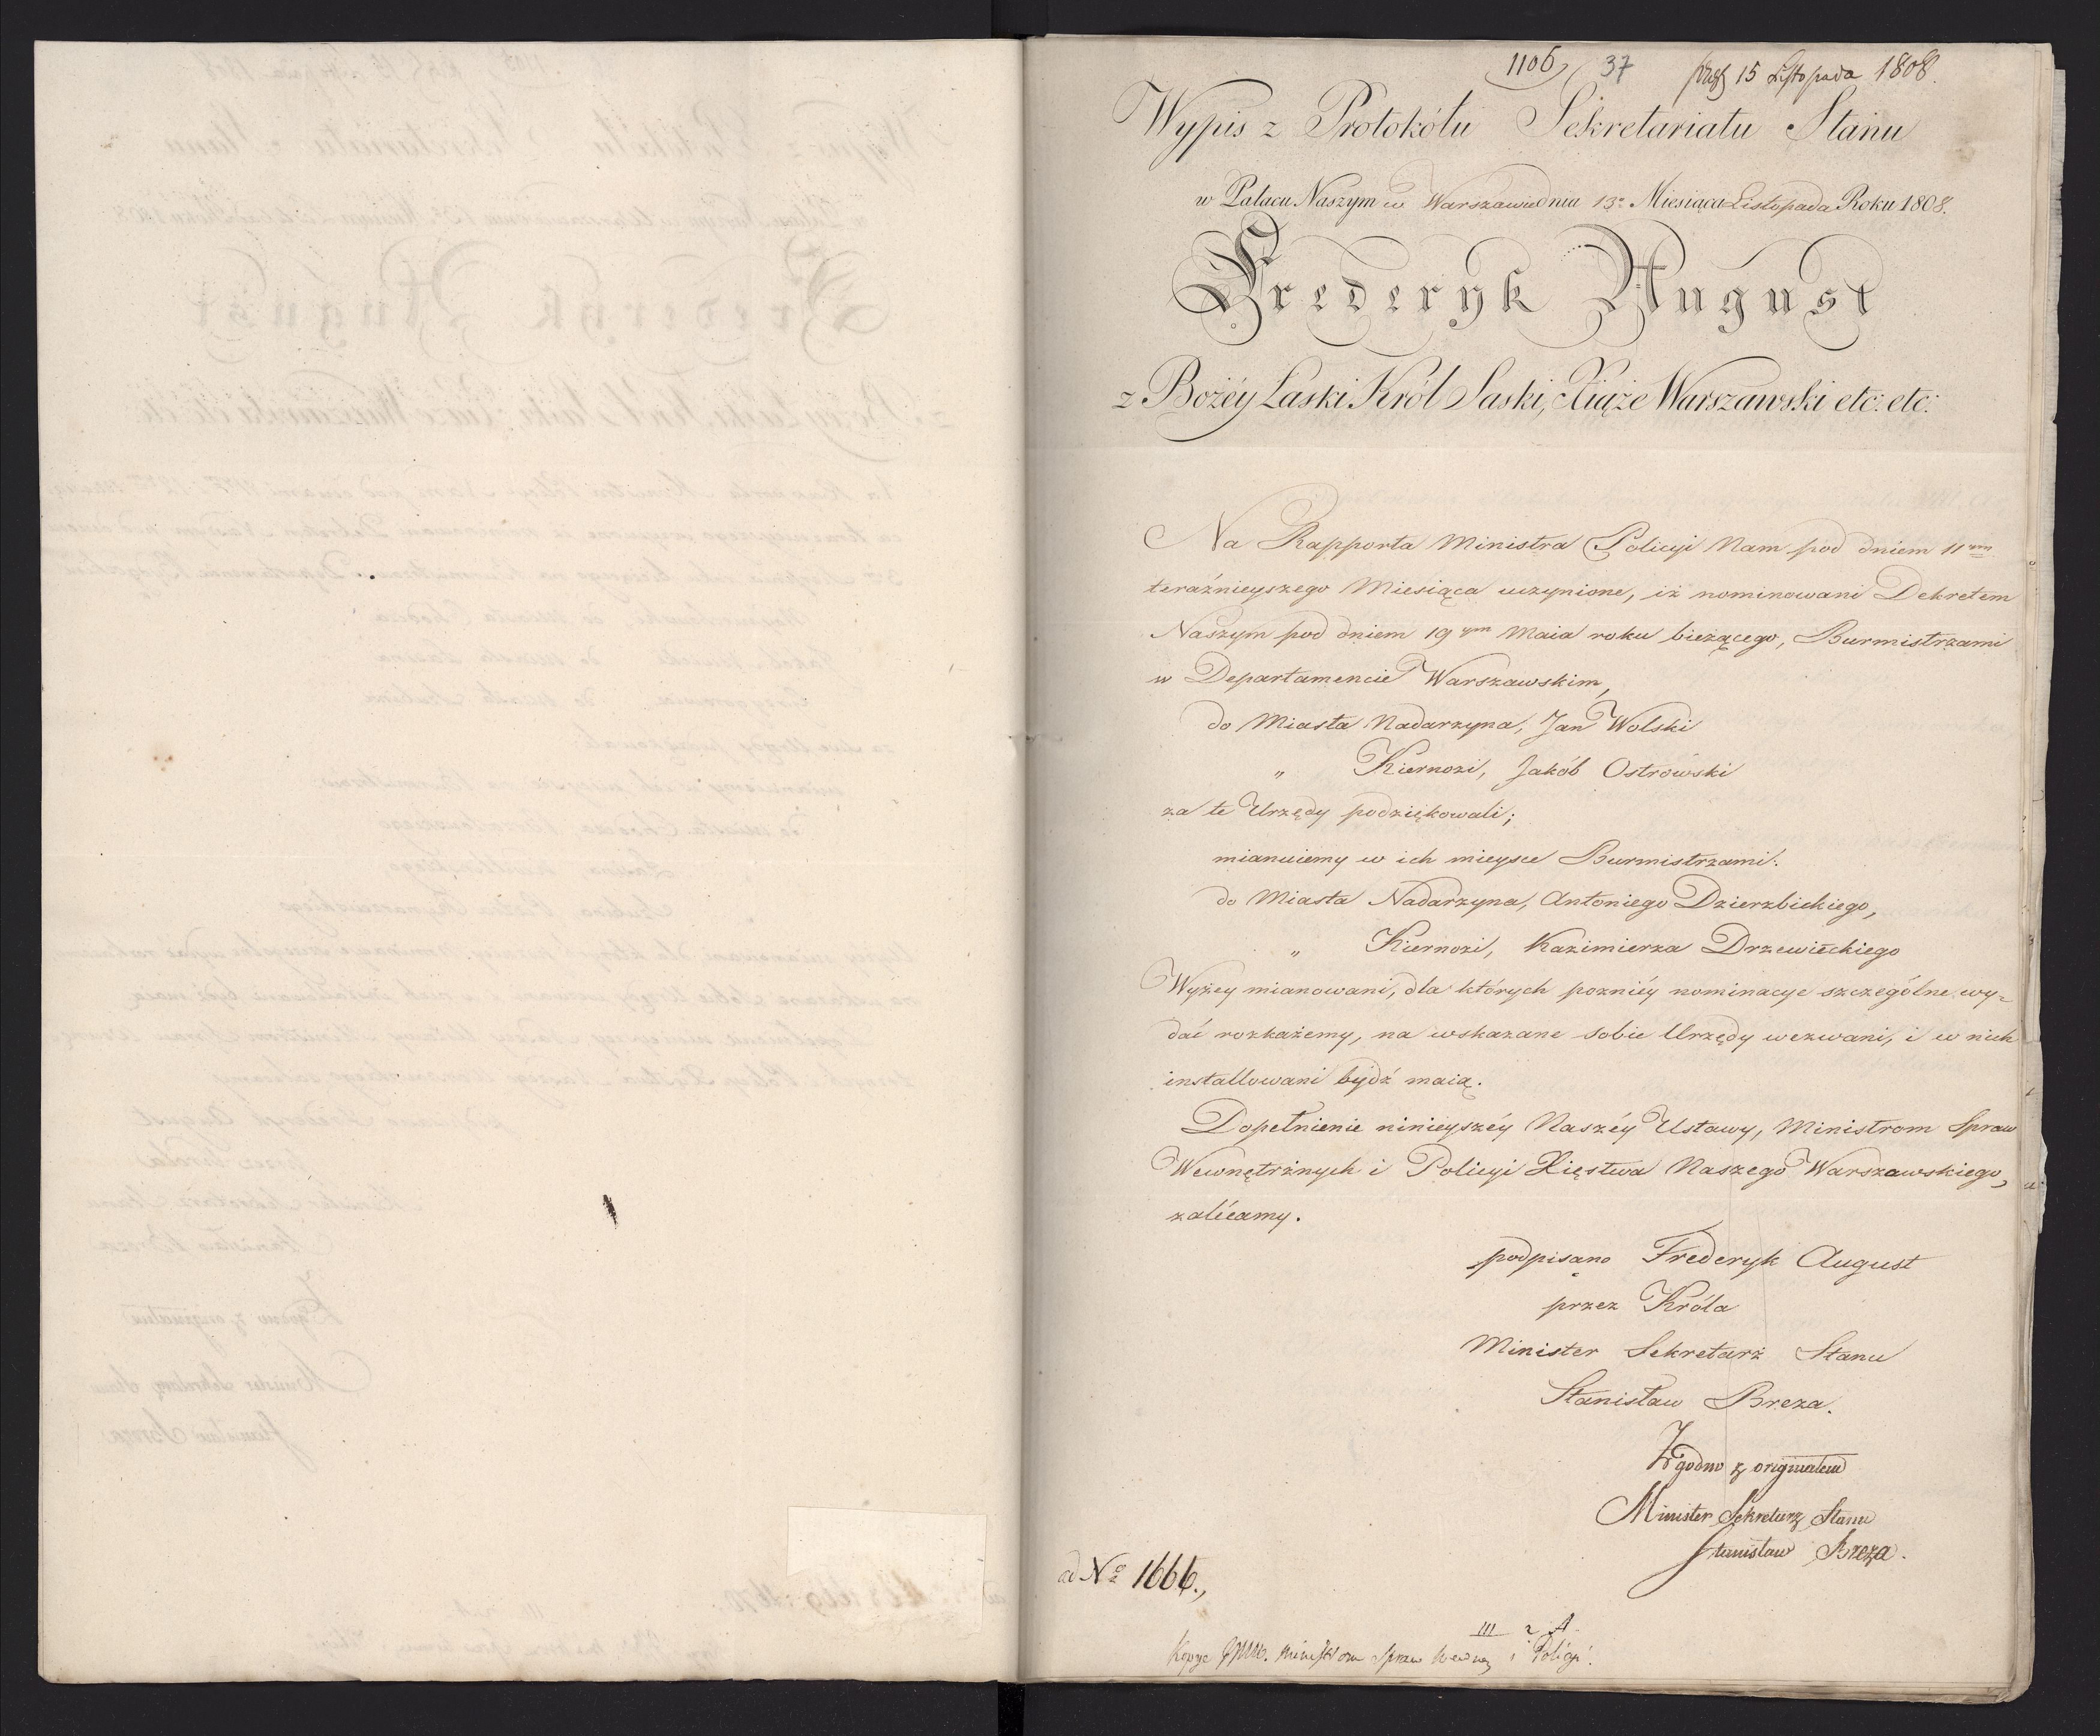 1106 37 prez 15 Listopada 1808.
Wypis z Protokółu Sekretariatu Stanu
w Pałacu Naszym w Warszawie dnia 13o Miesiąca Listopada Roku 1808.
Frederyk August
z Bożéy Łaski Król Saski, Xiąże Warszawski etc: etc:
Na Rapporta Ministra Policyi Nam pod dniem 11ym
teraźnieyszego Miesiąca uczynione, iż nominowani Dekretem
Naszym pod dniem 19ym Maia roku bieżącego, Burmistrzami
w Departamencie Warszawskim,
do Miasta Nadarzyna, Jan Wolski
" Kiernozi, Jakób Ostrowski
za te Urzędy podziękowali;
mianuiemy w ich mieysce Burmistrzami:
do Miasta Nadarzyna, Antoniego Dzierzbickiego,
" Kiernozi, Kazimierza Drzewieckiego
Wyżey mianowani, dla których pozniéy nominacye szczególne wy-
dać rozkażemy, na wskazane sobie Urzędy wezwani, i w nich
installowani bydź maią.
Dopełnienie ninieyszéy Naszéy Ustawy, Ministrom Spraw
Wewnętrżnych i Policyi Xięstwa Naszego Warszawskiego,
zalécamy.
podpisano Frederyk August
przez Króla
Minister Sekretarz Stanu
Stanisław Breza.
Zgodno z originałem
Minister Sekretarz Stanu
Stanisław Breza.
ad No 1666.,
III 2 A
Kopye Ministrom Spraw Wewnę i Policyi.